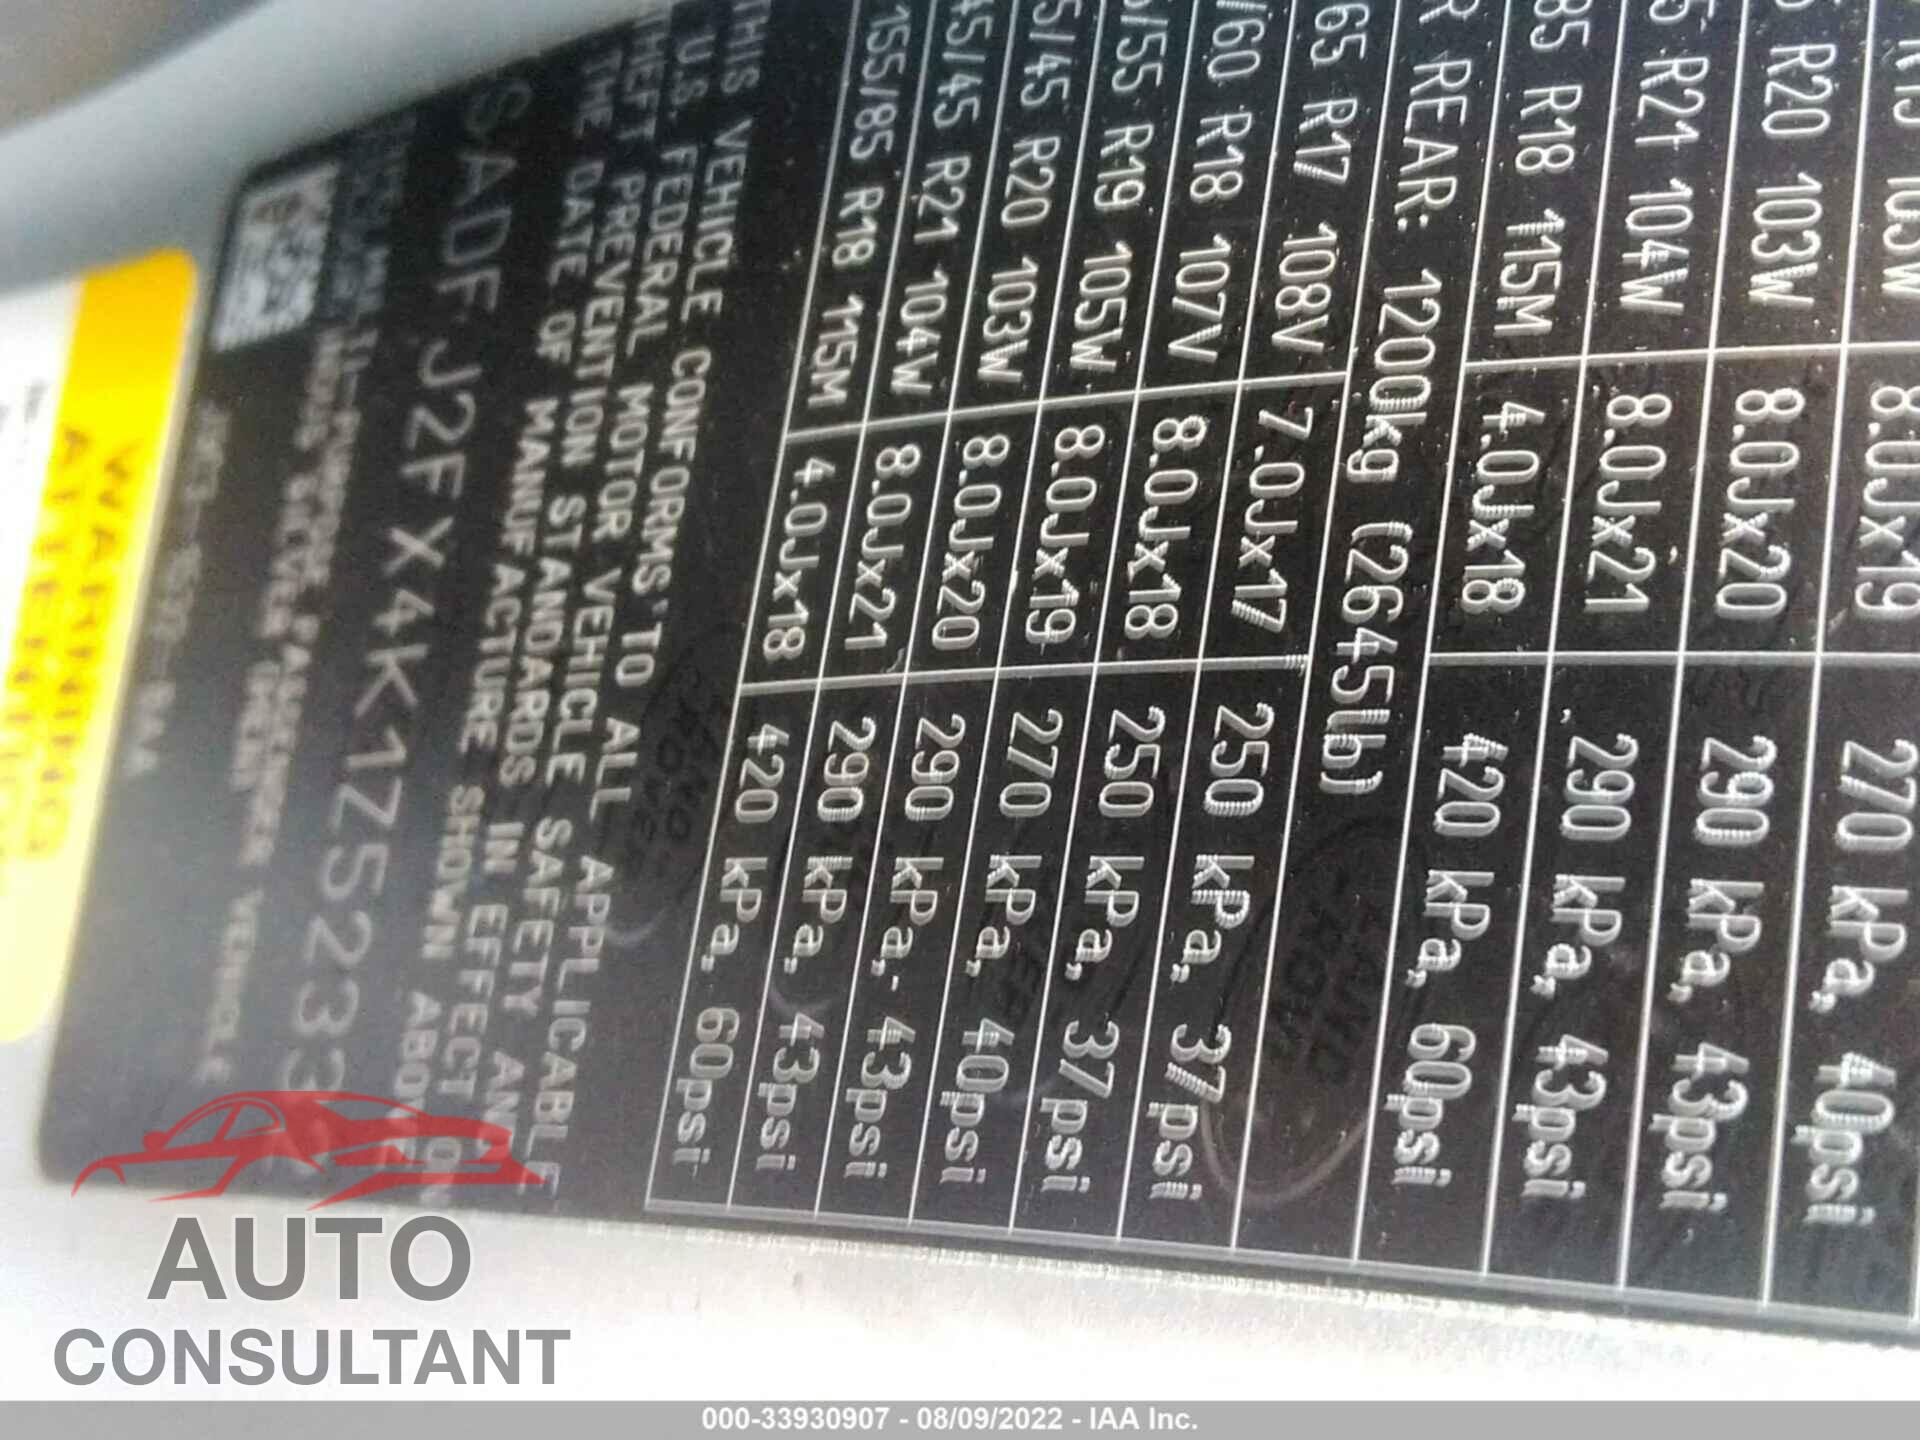 85 R18 115M 4.0Jx18 420 kPa, 60psi
R21 104W 8.0Jx21 290 kPa, 43psi
R20 103W 8.0Jx20 290 kPa, 43psi
8.0Jx19 270 kPa, 40psi
REAR: 1200kg (2645lb)
65 R17 108V 7.0Jx17 250 kPa, 37psi
/60 R18 107V 8.0Jx18 250 kPa, 37psi
/55 R19 105W 8.0Jx19 270 kPa, 40psi
5/45 R20 103W 8.0Jx20 290 kPa, 43psi
45/45 R21 104W 8.0Jx21 290 kPa, 43psi
155/85 R18 115M 4.0Jx18 420 kPa, 60psi
THIS VEHICLE CONFORMS TO ALL APPLICABLE
U.S. FEDERAL MOTOR VEHICLE SAFETY AND
THEFT PREVENTION STANDARDS IN EFFECT ON
THE DATE OF MANUFACTURE SHOWN ABOVE
SADFJ2FX4K1Z5233
WARNING
AUTO
CONSULTANT
000-33930907 - 08/09/2022 - IAA Inc.